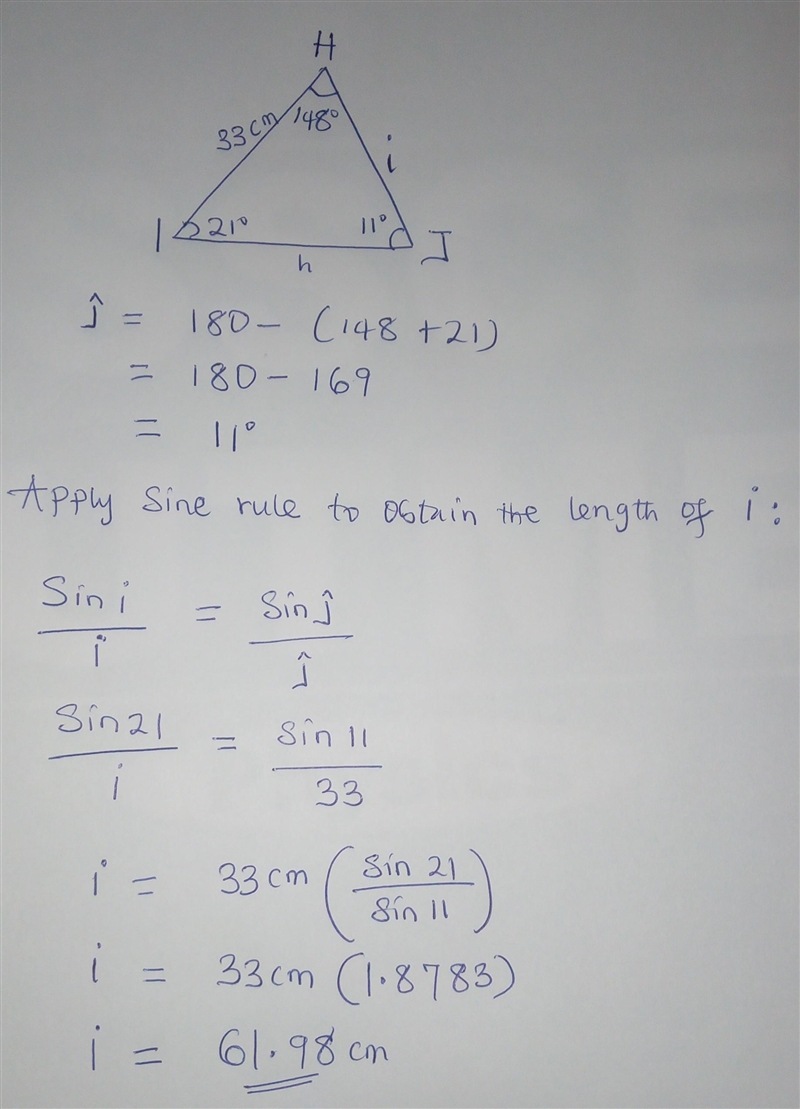 H
33cm 148° i
I 21° 11° J
h
Ĵ = 180 - (148 + 21)
= 180 - 169
= 11°
Apply Sine rule to obtain the length of i:
Sin i / i = Sin Ĵ / Ĵ
Sin 21 / i = Sin 11 / 33
i = 33 cm (Sin 21 / Sin 11)
i = 33 cm (1.8783)
i = 61.98 cm